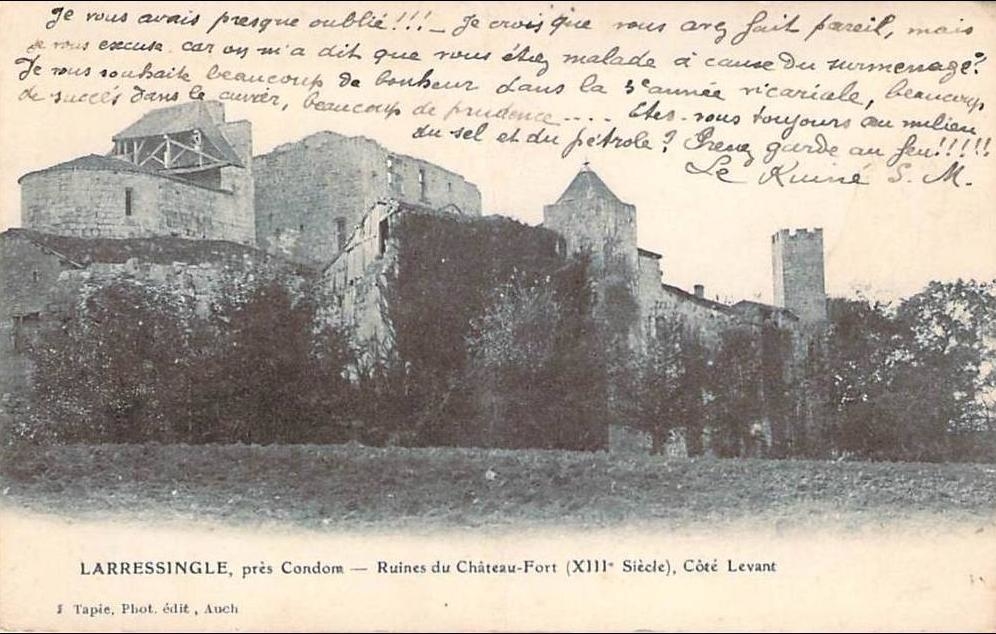 Je vous avais presque oublié!!! _ Je crois que vous avez fait pareil, mais
je vous excuse car on m'a dit que vous étiez malade à cause du surmenage?
Je vous souhaite beaucoup de bonheur dans la 3e année vicariale, beaucoup
de succès dans le cuvier, beaucoup de prudence.... Etes-vous toujours au milieu
du sel et du pétrole? Prenez garde au feu!!!!!
Le S. M.
LARRESSINGLE, près Condom — Ruines du Château-Fort (XIIIe Siècle), Côté Levant
Tapie, Phot. édit, Auch